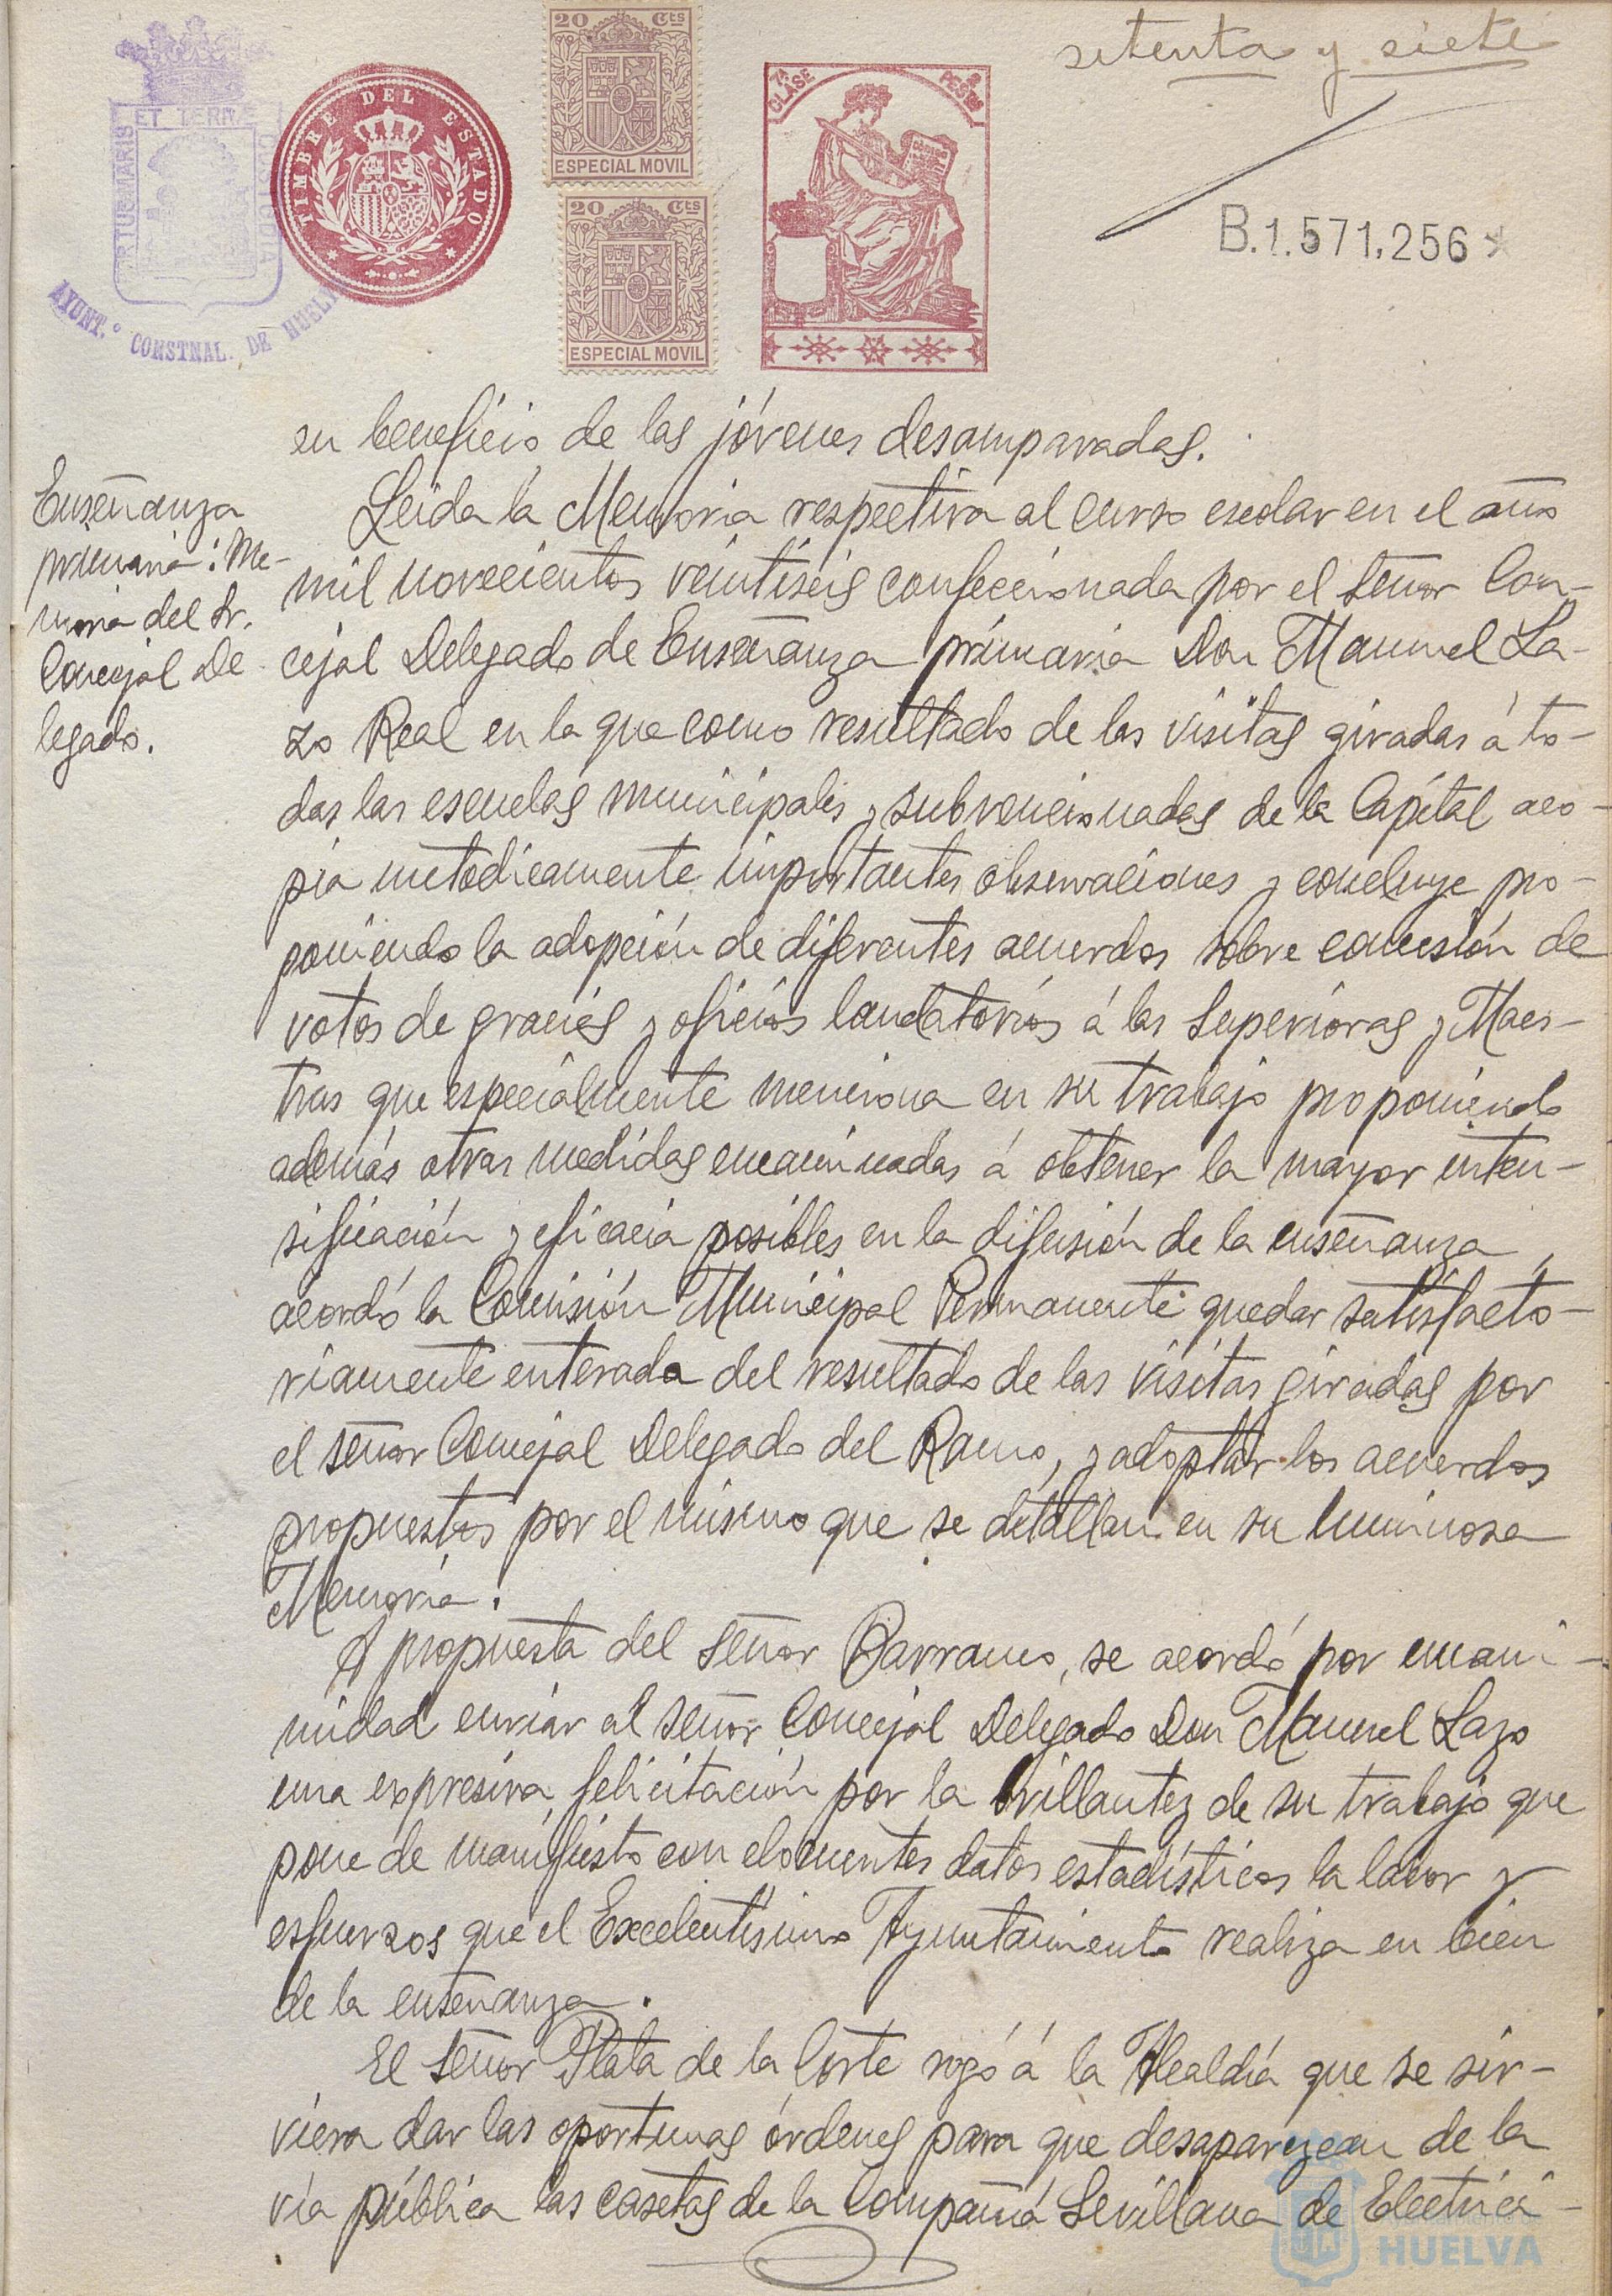 setenta y siete
20 Cts
ESPECIAL MOVIL
20 Cts
ESPECIAL MOVIL
TIMBRE DEL ESTADO
7ª CLASE
PESTAS
B.1.571,256
PORTUS MARIS ET TERRÆ CUSTODIA
AYUNT.º CONSTNAL. DE HUELVA
en beneficio de las jóvenes desamparadas.
Enseñanza
primaria: Me-
moria del Sr.
Concejal De-
legado.
Leida la Memoria respectiva al curso escolar en el año
mil novecientos veintiseis confeccionada por el señor Con-
cejal Delegado de Enseñanza primaria Don Manuel La-
zo Real en la que como resultado de las visitas giradas á to-
das las escuelas municipales y subvencionadas de la Capital aco-
pia metodicamente importantes observaciones y concluye pro-
poniendo la adopción de diferentes acuerdos sobre concesión de
votos de gracias y oficios laudatorios á las Superioras y Maes-
tras que especialmente menciona en su trabajo proponiendo
además otras medidas encaminadas á obtener la mayor inten-
sificación y eficacia posibles en la difusión de la enseñanza,
acordó la Comisión Municipal Permanente quedar satisfacto-
riamente enterada del resultado de las visitas giradas por
el señor Concejal Delegado del Ramo, y adoptar los acuerdos
propuestos por el mismo que se detallan en su luminosa
Memoria.
A propuesta del señor Barranco, se acordó por unani-
midad enviar al señor Concejal Delegado Don Manuel Lazo
una expresiva felicitación por la brillantez de su trabajo que
pone de manifiesto con elocuentes datos estadísticos la labor y
esfuerzos que el Excelentísimo Ayuntamiento realiza en bien
de la enseñanza.
El señor Plata de la Corte rogó á la Alcaldía que se sir-
viera dar las oportunas órdenes para que desaparezcan de la
vía pública las casetas de la Compañía Sevillana de Electrici-
HUELVA